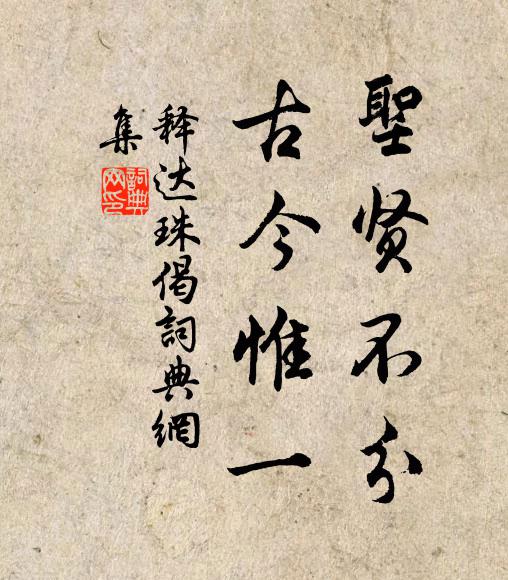 聖贤不分
古今惟一
释达珠偈詞典網
集
詞典
网印